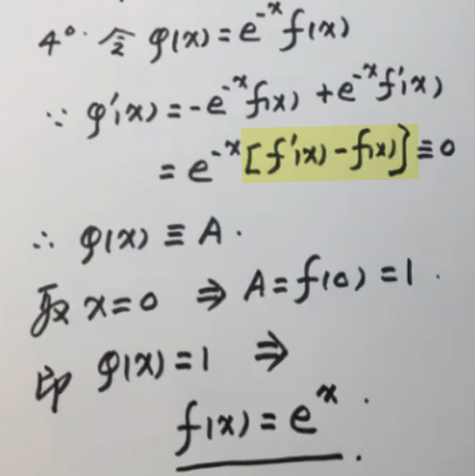 4°. 令 φ(x) = e^{-x} f(x)
∵ φ'(x) = -e^{-x} f(x) + e^{-x} f'(x)
= e^{-x} [f'(x) - f(x)] ≡ 0
∴ φ(x) ≡ A.
取 x = 0 ⇒ A = f(0) = 1.
即 φ(x) = 1 ⇒
f(x) = e^x.